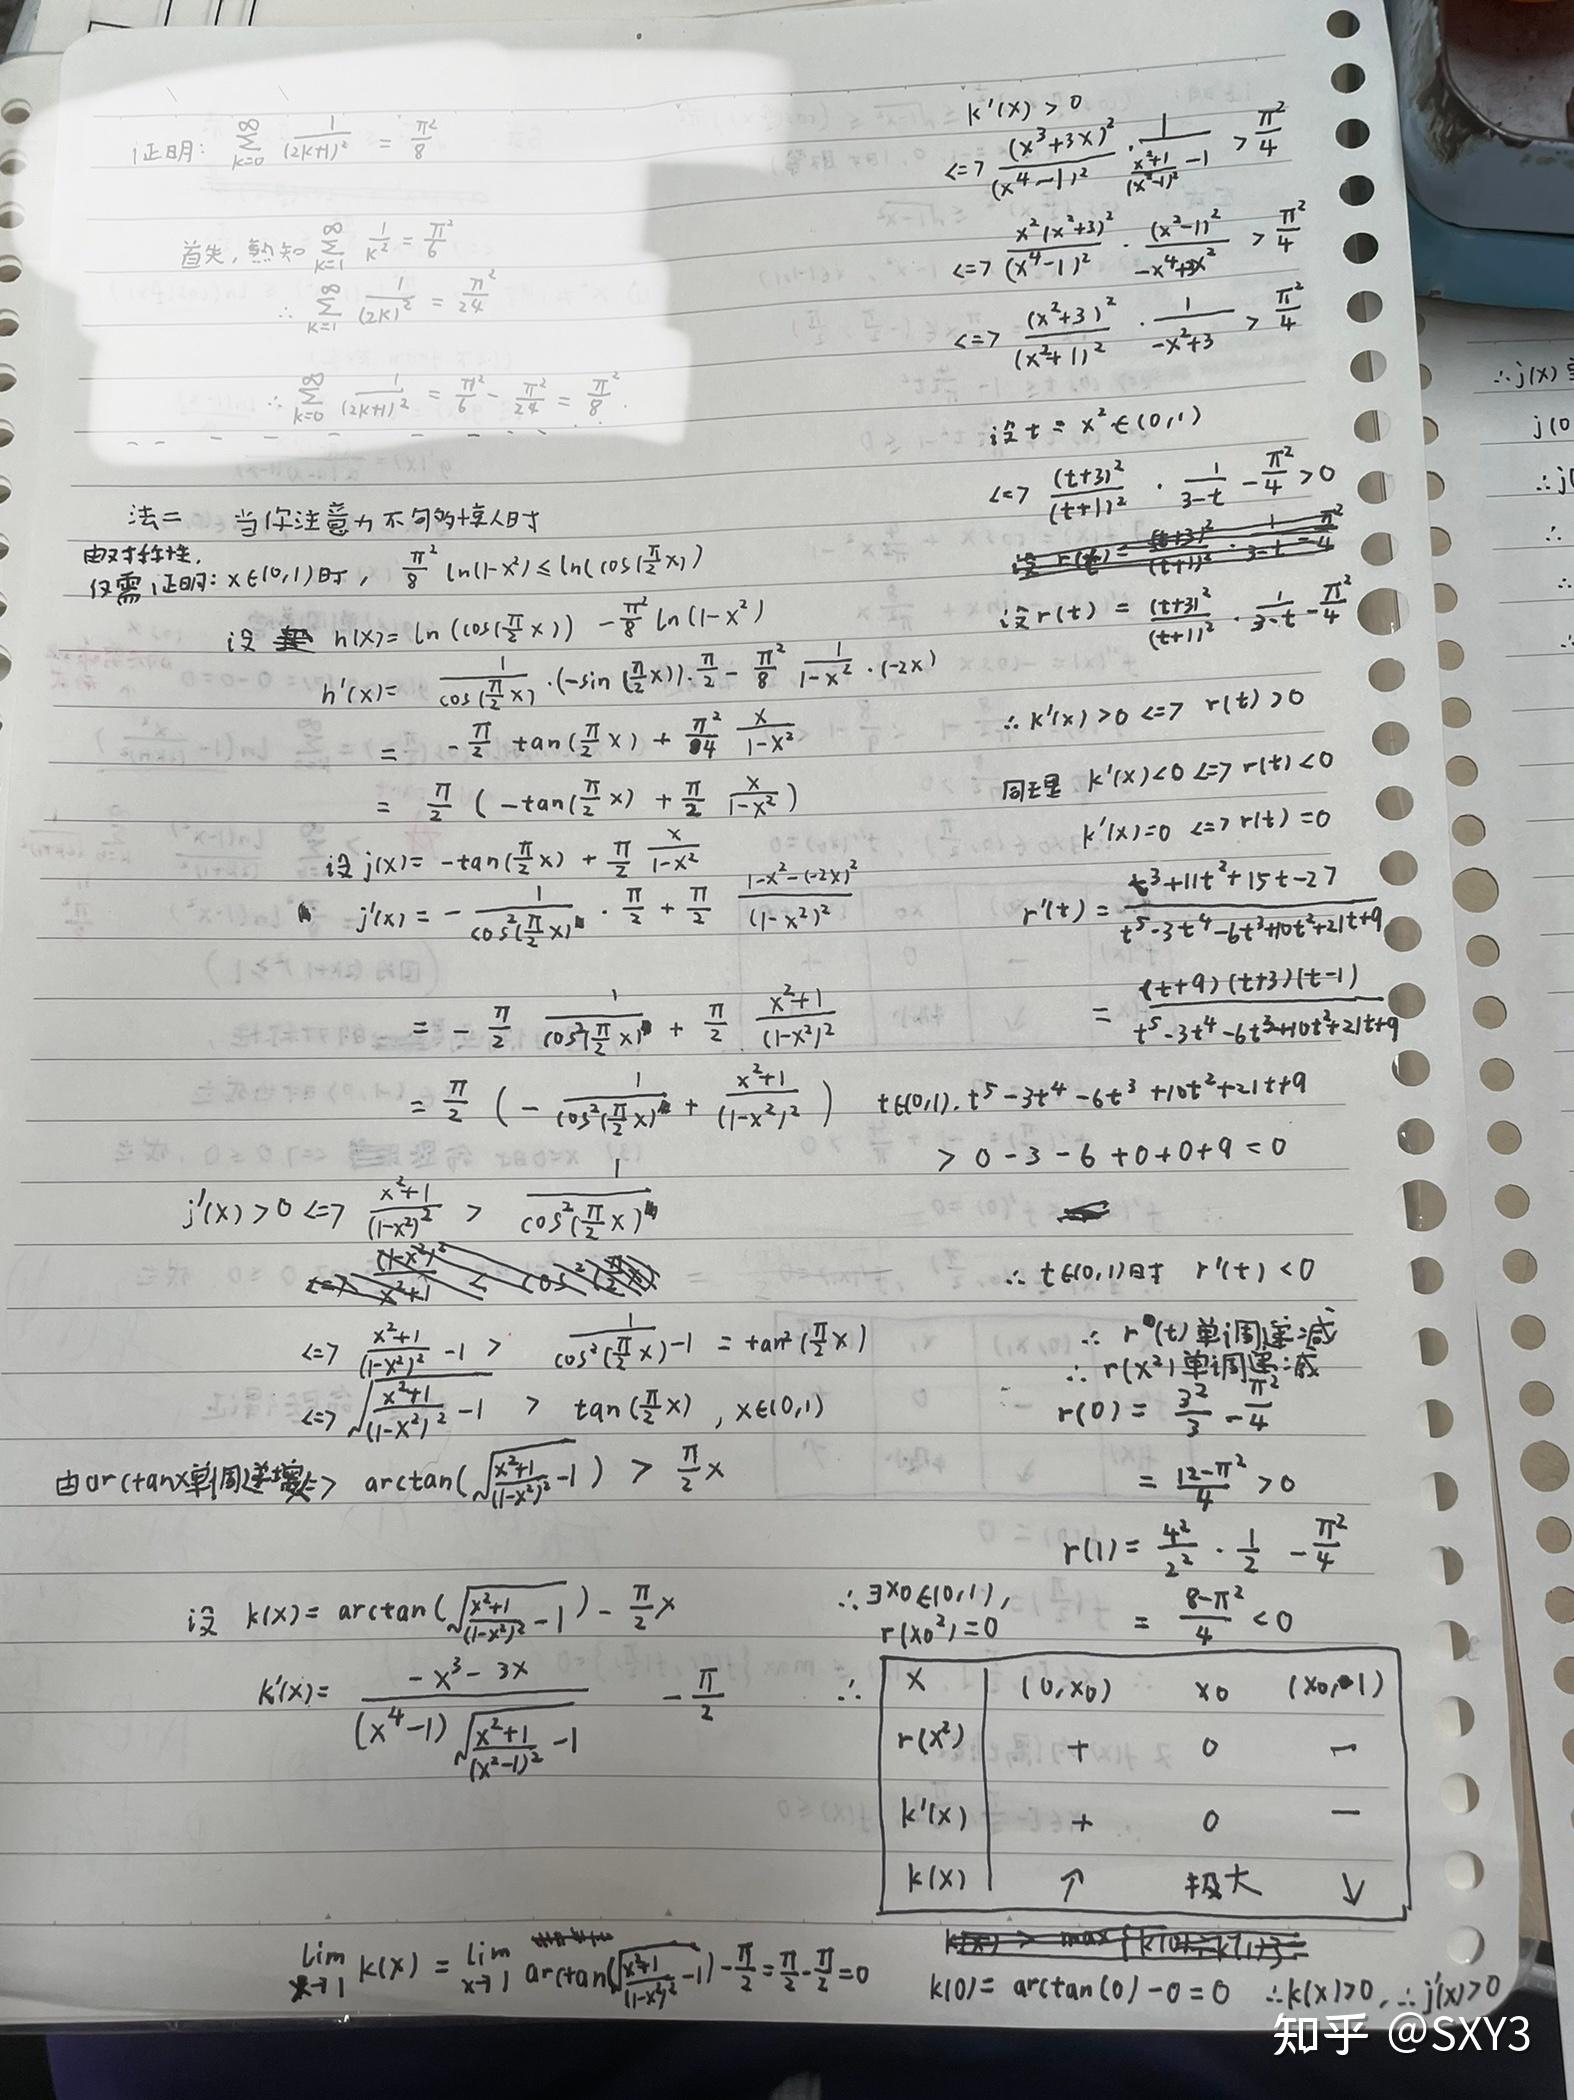 证明: ∑_{k=0}^{∞} 1/(2k+1)² = π²/8
首先, 熟知 ∑_{k=1}^{∞} 1/k² = π²/6
∴ ∑_{k=1}^{∞} 1/(2k)² = π²/24
∴ ∑_{k=0}^{∞} 1/(2k+1)² = π²/6 - π²/24 = π²/8.
法二 当你注意力不够惊人时
由对称性,
仅需证明: x∈(0,1)时, π²/8 ln(1-x²) ≤ ln(cos(π/2 x))
设 h(x) = ln(cos(π/2 x)) - π²/8 ln(1-x²)
h'(x) = 1/cos(π/2 x) · (-sin(π/2 x)) · π/2 - π²/8 · 1/(1-x²) · (-2x)
= -π/2 tan(π/2 x) + π²/4 x/(1-x²)
= π/2 (-tan(π/2 x) + π/2 x/(1-x²))
设 j(x) = -tan(π/2 x) + π/2 x/(1-x²)
j'(x) = -1/cos²(π/2 x) · π/2 + π/2 (1-x²-(-2x)²)/(1-x²)²
= -π/2 1/cos²(π/2 x) + π/2 (x²+1)/(1-x²)²
= π/2 (-1/cos²(π/2 x) + (x²+1)/(1-x²)²)
j'(x) > 0 <=> (x²+1)/(1-x²)² > 1/cos²(π/2 x)
<=> (x²+1)/(1-x²)² - 1 > 1/cos²(π/2 x) - 1 = tan²(π/2 x)
<=> √((x²+1)/(1-x²)² - 1) > tan(π/2 x), x∈(0,1)
由arctanx单调递增<=> arctan(√((x²+1)/(1-x²)² - 1)) > π/2 x
设 k(x) = arctan(√((x²+1)/(1-x²)² - 1)) - π/2 x
k'(x) = (-x³-3x)/((x⁴-1)√((x²+1)/(x²-1)² - 1)) - π/2
lim_{x→1} k(x) = lim_{x→1} arctan(√((x²+1)/(1-x²)² - 1)) - π/2 = π/2 - π/2 = 0
k'(x) > 0
<=> (x³+3x)²/(x⁴-1)² · 1/((x²+1)/(x²-1)² - 1) > π²/4
<=> x²(x²+3)²/(x⁴-1)² · (x²-1)²/(-x⁴+3x²) > π²/4
<=> (x²+3)²/(x²+1)² · 1/(-x²+3) > π²/4
设 t = x² ∈ (0,1)
<=> (t+3)²/(t+1)² · 1/(3-t) - π²/4 > 0
设 r(t) = (t+3)²/(t+1)² · 1/(3-t) - π²/4
∴ k'(x) > 0 <=> r(t) > 0
同理 k'(x) < 0 <=> r(t) < 0
k'(x) = 0 <=> r(t) = 0
r'(t) = (t³+11t²+15t-27)/(t⁵-3t⁴-6t³+10t²+21t+9)
= (t+9)(t+3)(t-1)/(t⁵-3t⁴-6t³+10t²+21t+9)
t∈(0,1). t⁵-3t⁴-6t³+10t²+21t+9
> 0-3-6+0+0+9 = 0
∴ t∈(0,1)时 r'(t) < 0
∴ r(t)单调递减
∴ r(x²)单调递减
r(0) = 3²/3 - π²/4
= (12-π²)/4 > 0
r(1) = 4²/2² · 1/2 - π²/4
= (8-π²)/4 < 0
∴ ∃x0∈(0,1),
r(x0²) = 0
∴ x (0,x0) x0 (x0,1)
r(x²) + 0 -
k'(x) + 0 -
k(x) ↑ 极大 ↓
k(0) = arctan(0) - 0 = 0 ∴k(x)>0, ∴j'(x)>0
∴j(x)
j(0
∴j(
知乎 @SXY3